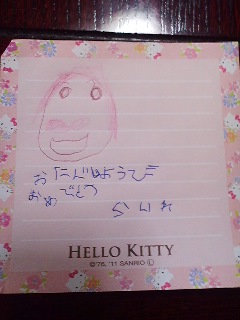 お たんじょうび
おめ でとう
らいれ
HELLO KITTY
©'76, '11 SANRIO Ⓛ